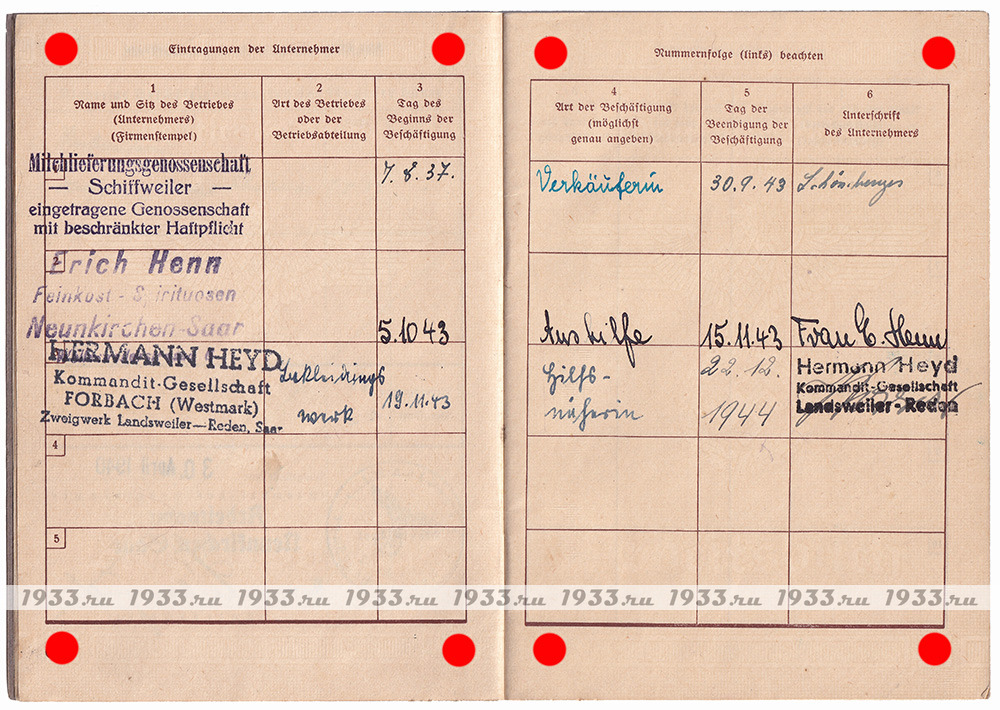 Eintragungen der Unternehmer
1
Name und Sitz des Betriebes
(Unternehmers)
(Firmenstempel)
2
Art des Betriebes
oder der
Betriebsabteilung
3
Tag des
Beginns der
Beschäftigung
Milchlieferungsgenossenschaft
— Schiffweiler —
eingetragene Genossenschaft
mit beschränkter Haftpflicht
7.8.37.
2
Erich Henn
Feinkost - Spirituosen
Neunkirchen-Saar
5.10 43
HERMANN HEYD
Kommandit-Gesellschaft
FORBACH (Westmark)
Zweigwerk Landsweiler—Reden, Saar
werk
19.11.43
4
5
Nummernfolge (links) beachten
4
Art der Beschäftigung
(möglichst
genau angeben)
5
Tag der
Beendigung der
Beschäftigung
6
Unterschrift
des Unternehmers
Verkäuferin
30.9.43
Aushilfe
15.11.43
Frau E. Henn
Hilfs-
näherin
22.12.
1944
Hermann Heyd
Kommandit-Gesellschaft
Landsweiler-Reden
1933.ru 1933.ru 1933.ru 1933.ru 1933.ru 1933.ru 1933.ru 1933.ru 1933.ru